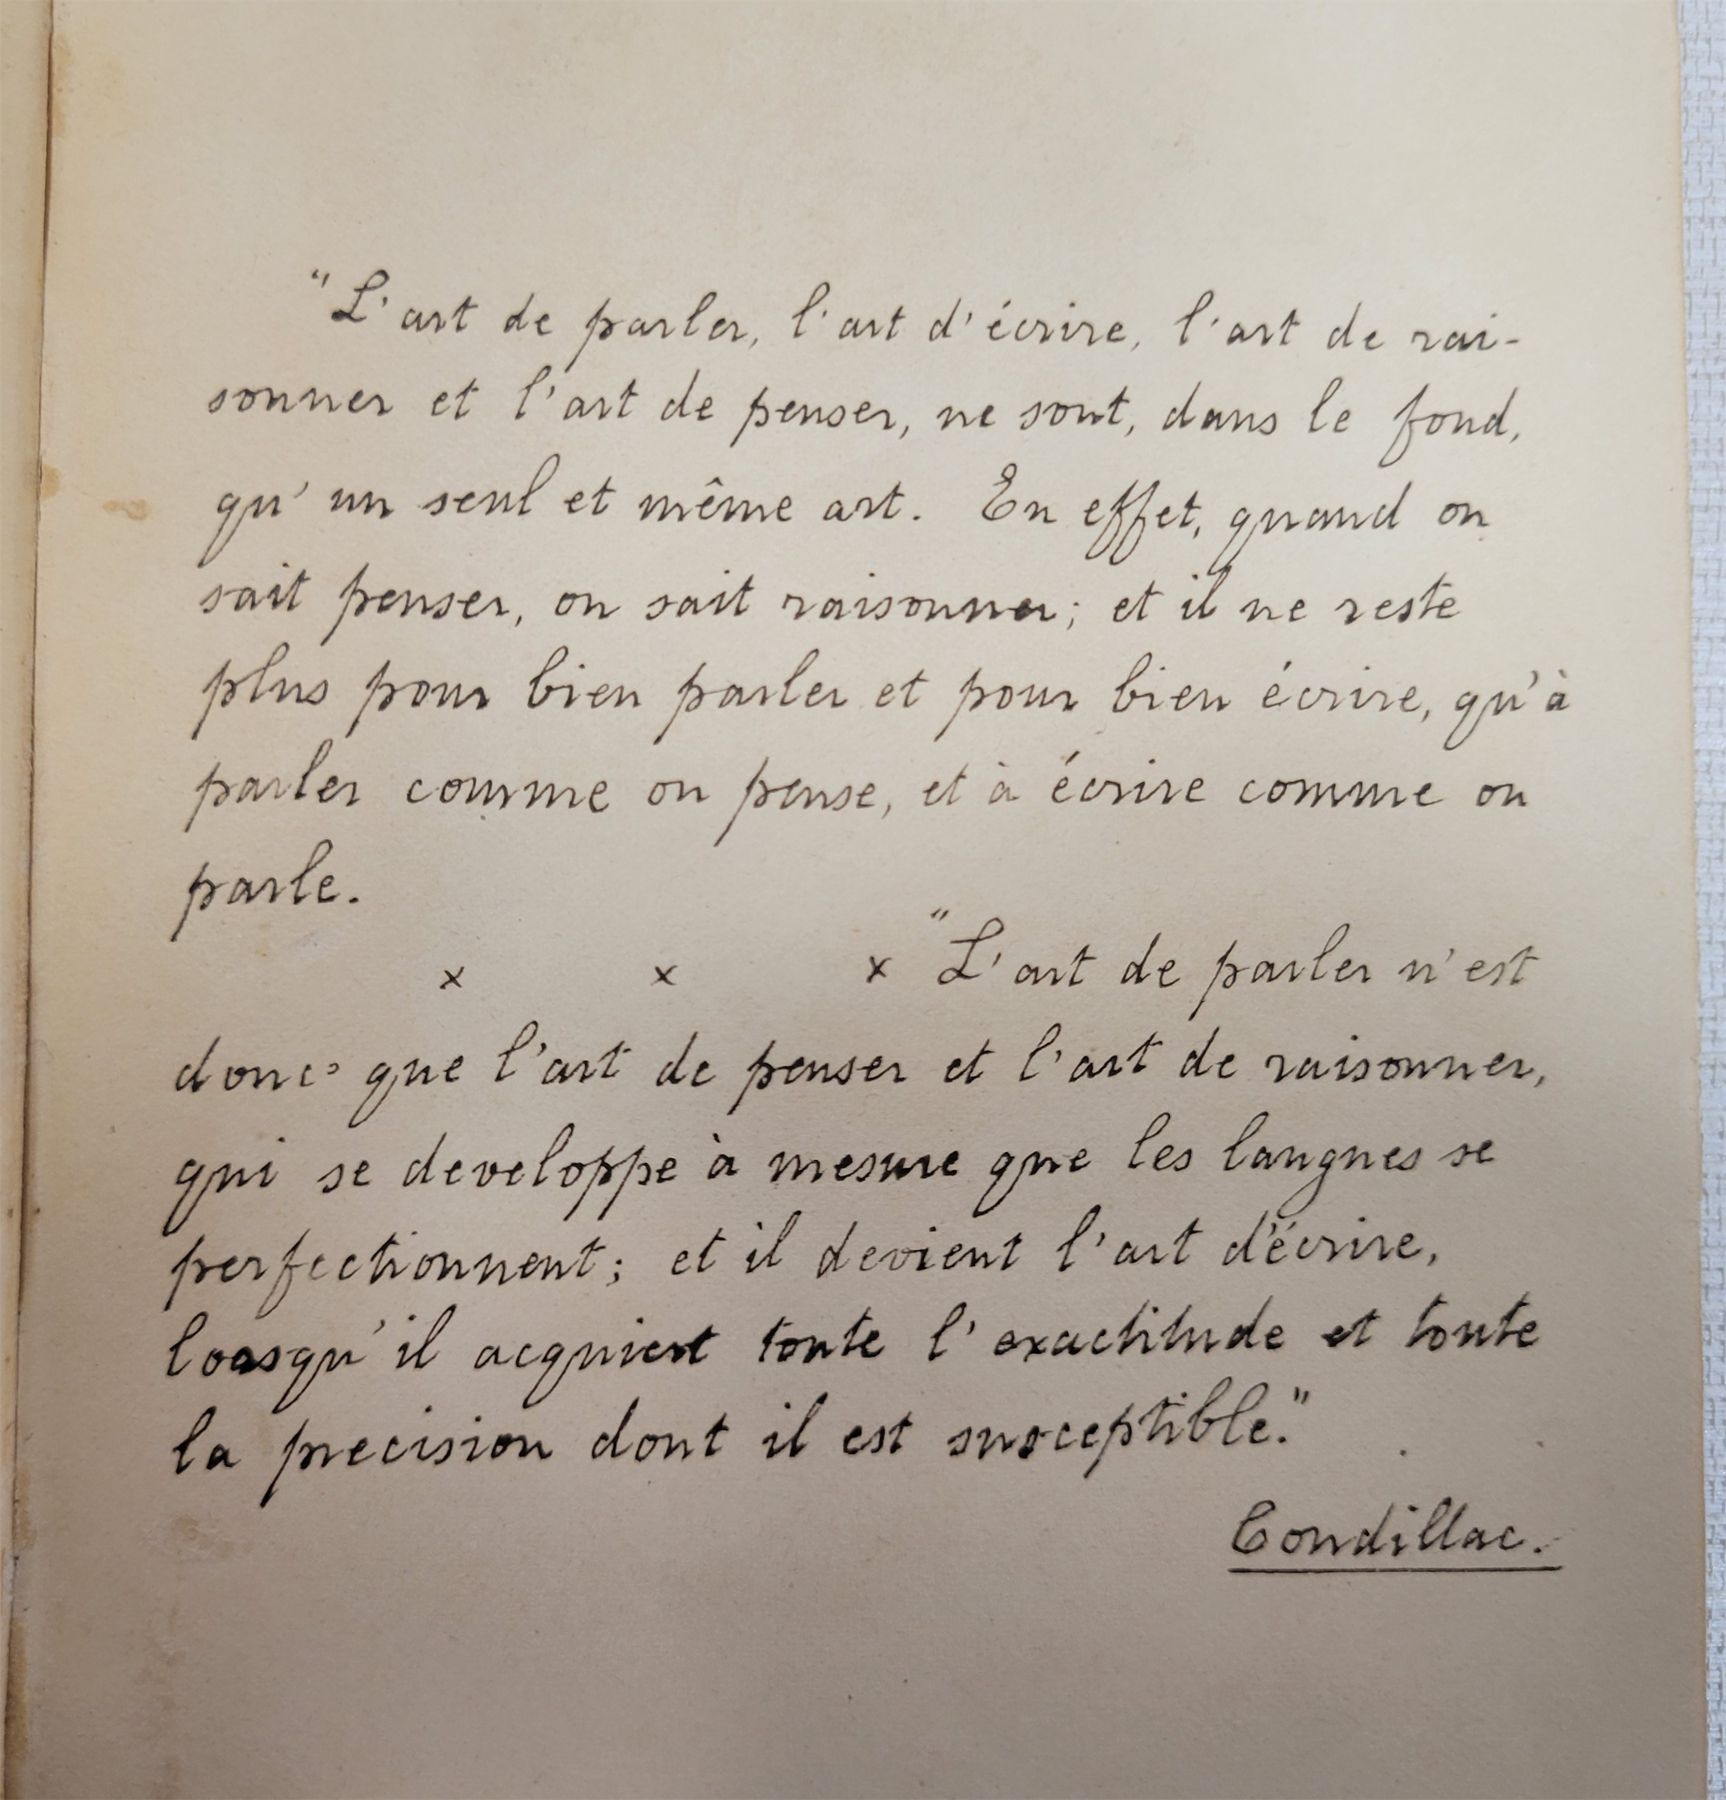 "L'art de parler, l'art d'écrire, l'art de rai-
sonner et l'art de penser, ne sont, dans le fond,
qu'un seul et même art. En effet, quand on
sait penser, on sait raisonner; et il ne reste
plus pour bien parler et pour bien écrire, qu'à
parler comme on pense, et à écrire comme on
parle.
x x x "L'art de parler n'est
donc que l'art de penser et l'art de raisonner,
qui se developpe à mesure que les langues se
perfectionnent; et il devient l'art d'écrire,
lorsqu'il acquiert toute l'exactitude et toute
la precision dont il est susceptible."
Condillac.